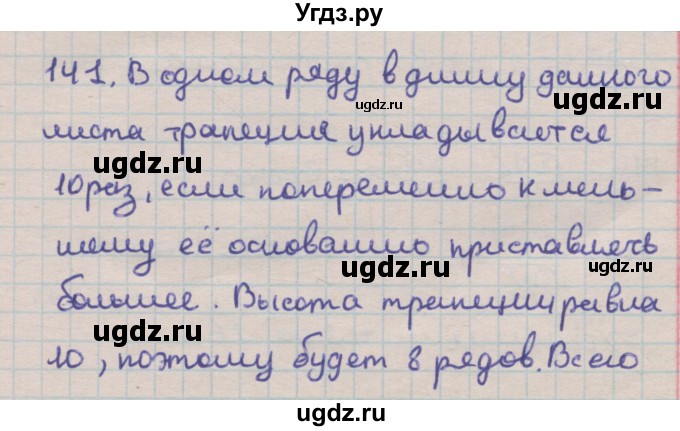 Угдз.ру
141. В одном ряду в длину данного
листа трапеция укладывается
10 раз, если попеременно к мень-
шему её основанию приставлять
большее. Высота трапеции равна
10, поэтому будет 8 рядов. Всего
ugdz.ru
ugdz.ru
ugdz.ru
ugdz.ru
ugdz.ru
ugdz.ru
ugdz.ru
ugdz.ru
ugdz.ru
ugdz.ru
ugdz.ru